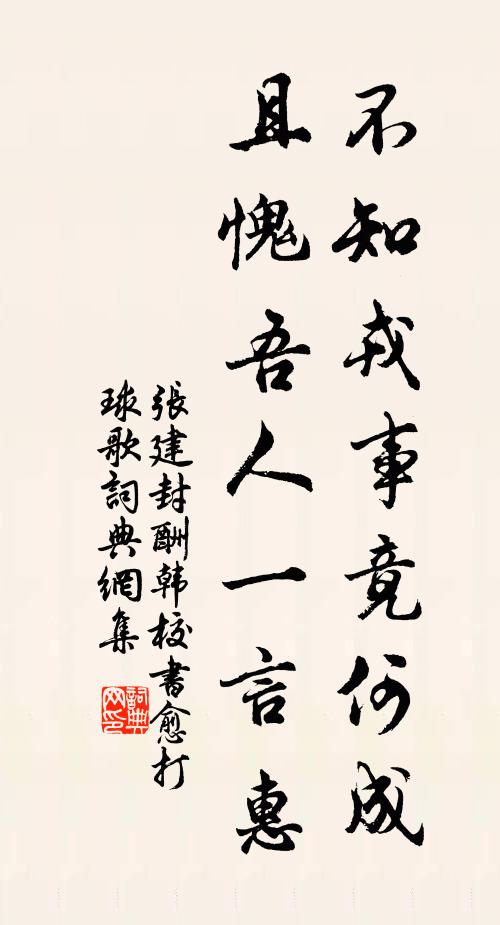 不知戎事竟何成
且愧吾人一言惠
張建封酬韩校書愈打
球歌詞典網集
詞典
网印